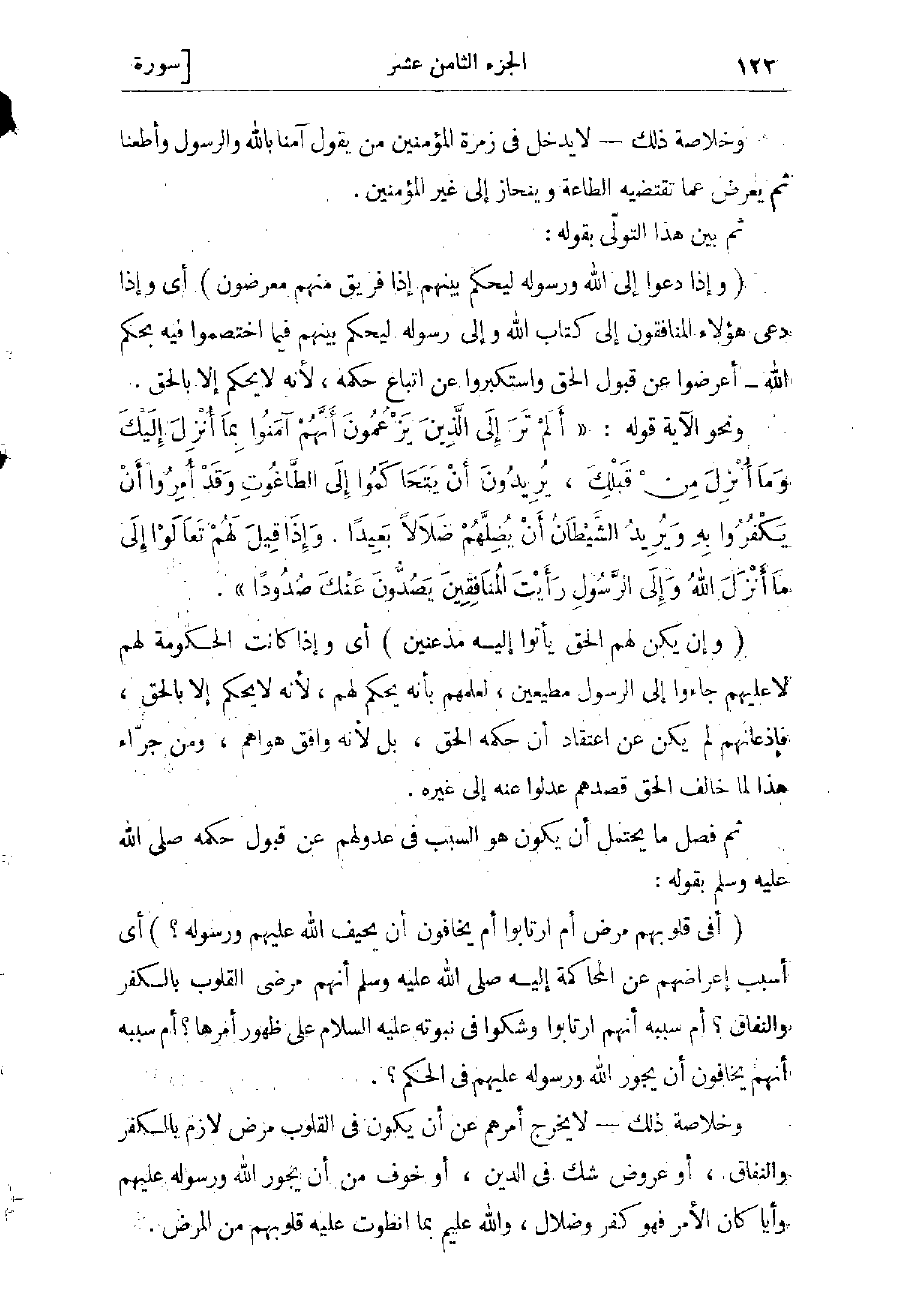 ١٢٣ الجزء الثامن عشر [ سورة
وخلاصة ذلك — لايدخل فى زمرة المؤمنين من يقول آمنا بالله والرسول وأطعنا
ثم يعرض عما تقتضيه الطاعة وينحاز إلى غير المؤمنين .
ثم بين هذا التولّى بقوله :
( وإذا دعوا إلى الله ورسوله ليحكم بينهم إذا فريق منهم معرضون ) أى وإذا
دعى هؤلاء المنافقون إلى كتاب الله وإلى رسوله ليحكم بينهم فيما اختصموا فيه بحكم
الله ـ أعرضوا عن قبول الحق واستكبروا عن اتباع حكمه ، لأنه لايحكم إلا بالحق .
ونحو الآية قوله : « أَلَمْ تَرَ إِلَى الَّذِينَ يَزْعُمُونَ أَنَّهُمْ آمَنُوا بِمَا أُنْزِلَ إِلَيْكَ
وَمَا أُنْزِلَ مِنْ قَبْلِكَ ، يُرِيدُونَ أَنْ يَتَحَاكَمُوا إِلَى الطَّاغُوتِ وَقَدْ أُمِرُوا أَنْ
يَكْفُرُوا بِهِ وَيُرِيدُ الشَّيْطَانُ أَنْ يُضِلَّهُمْ ضَلَالاً بَعِيدًا . وَإِذَا قِيلَ لَهُمْ تَعَالَوْا إِلَى
مَا أَنْزَلَ اللهُ وَإِلَى الرَّسُولِ رَأَيْتَ الْمُنَافِقِينَ يَصُدُّونَ عَنْكَ صُدُودًا » .
( وإن يكن لهم الحق يأتوا إليه مذعنين ) أى وإذا كانت الحكومة لهم
لاعليهم جاءوا إلى الرسول مطيعين ، لعلمهم بأنه يحكم لهم ، لأنه لايحكم إلا بالحق ،
فإذعانهم لم يكن عن اعتقاد أن حكمه الحق ، بل لأنه وافق هواهم ، ومن جرّاء
هذا لما خالف الحق قصدهم عدلوا عنه إلى غيره .
ثم فصل ما يحتمل أن يكون هو السبب فى عدولهم عن قبول حكمه صلى الله
عليه وسلم بقوله :
( أفى قلوبهم مرض أم ارتابوا أم يخافون أن يحيف الله عليهم ورسوله ؟ ) أى
أسبب إعراضهم عن المحاكمة إليه صلى الله عليه وسلم أنهم مرضى القلوب بالكفر
والنفاق ؟ أم سببه أنهم ارتابوا وشكوا فى نبوته عليه السلام على ظهور أمرها ؟ أم سببه
أنهم يخافون أن يجور الله ورسوله عليهم فى الحكم ؟ .
وخلاصة ذلك — لايخرج أمرهم عن أن يكون فى القلوب مرض لازم بالكفر
والنفاق ، أو عروض شك فى الدين ، أو خوف من أن يجور الله ورسوله عليهم
وأيا كان الأمر فهو كفر وضلال ، والله عليم بما انطوت عليه قلوبهم من المرض .